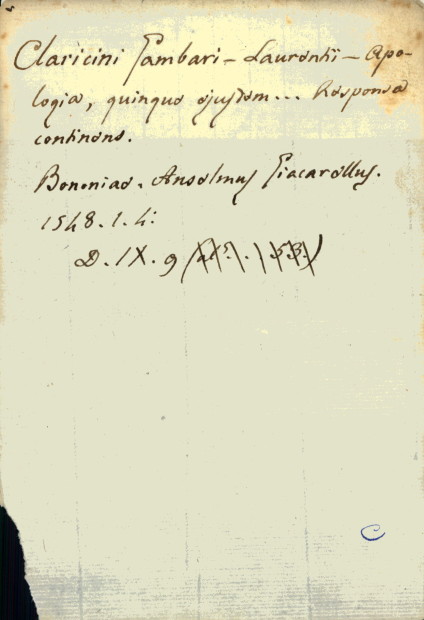 Claricini Gambari - Laurentii - Apo-
logia, quinque ejusdem... Responsa
continens.
Bononiae. Anselmus Giacarellus.
1548. 1. 4:
D. IX. 9
C